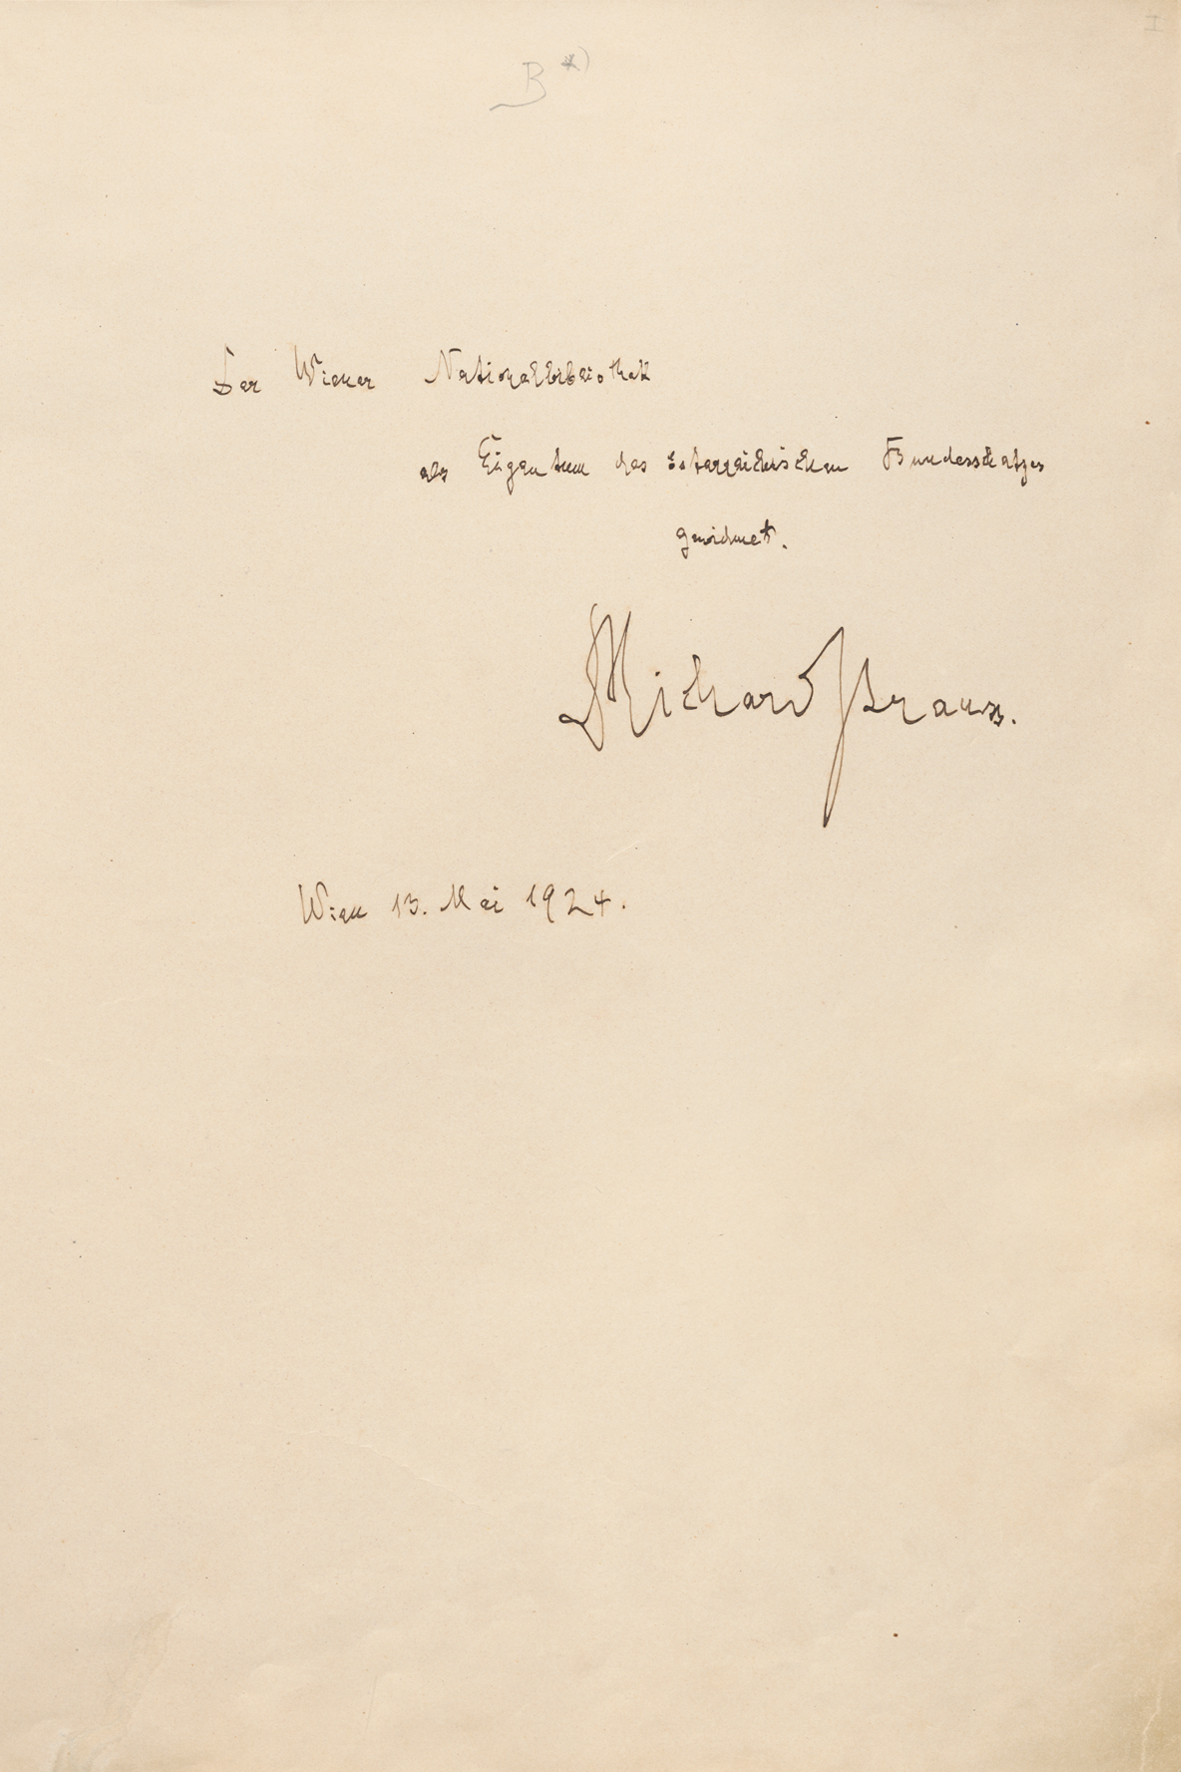 I
B *)
Der Wiener Nationalbibliothek
als Eigentum des österreichischen Bundesschatzes
gewidmet.
Richard Strauss.
Wien 13. Mai 1924.